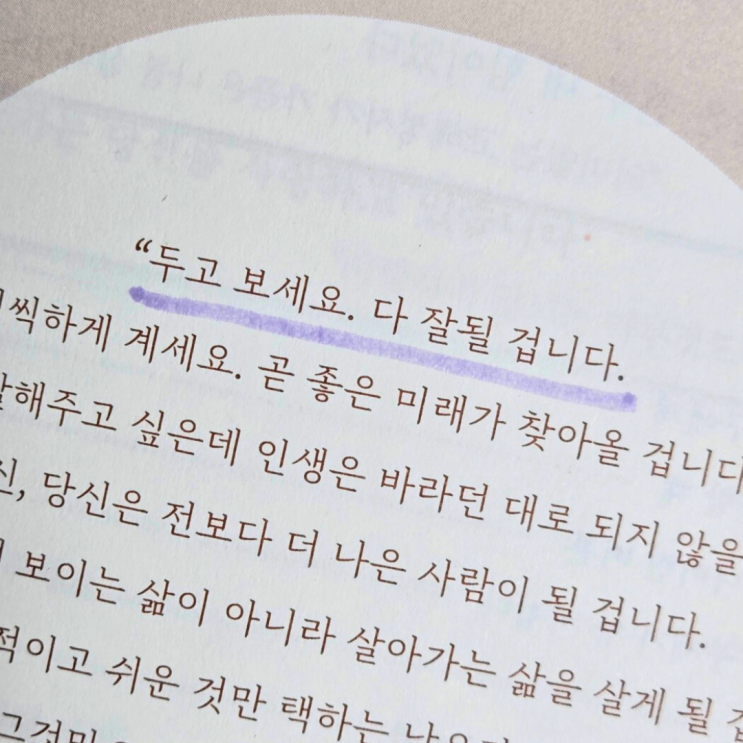 “두고 보세요. 다 잘될 겁니다.
씩하게 계세요. 곧 좋은 미래가 찾아올 겁니다
해주고 싶은데 인생은 바라던 대로 되지 않을
신, 당신은 전보다 더 나은 사람이 될 겁니다.
보이는 삶이 아니라 살아가는 삶을 살게 될
적이고 쉬운 것만 택하는